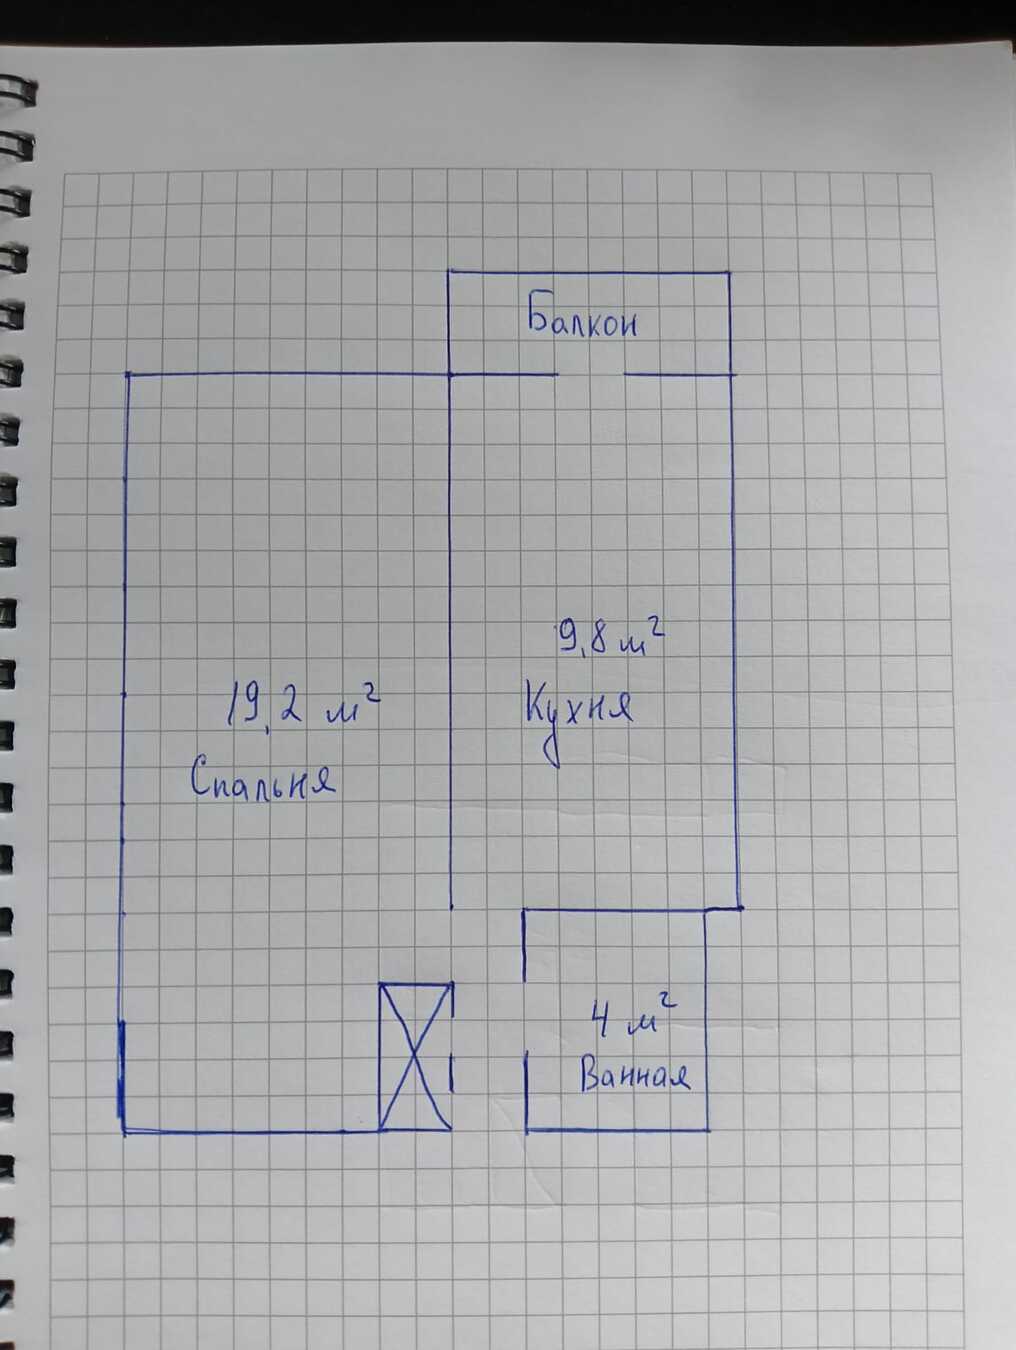 Балкон
9,8 м²
Кухня
19,2 м²
Спальня
4 м²
Ванная